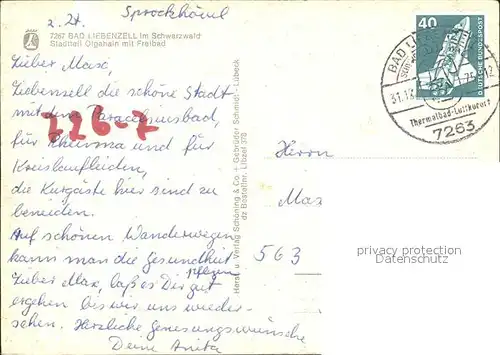 z. Zt. Sprockhövel
7267 BAD LIEBENZELL im Schwarzwald
Stadtteil Olgahain mit Freibad
Lieber Max,
Liebenzell die schöne Stadt
mit dem Paracelsusbad,
für Rheuma und für
Kreislaufleiden,
die Kurgäste hier sind zu
beneiden.
Auf schönen Wanderwegen
kann man die Gesundheit
pflegen
Lieber Max, laß es Dir gut
ergehen bis wir uns wieder-
sehen. Herzliche Genesungswünsche
Deine Anita
626-7
Herst. u. Verlag Schöning & Co + Gebrüder Schmidt, Lübeck
dz Bestellnr. Libzel 378
40
DEUTSCHE BUNDESPOST
BAD LIEBENZELL
75-12
Thermalbad-Luftkurort
7263
Herrn
Max
563
privacy protection
Datenschutz